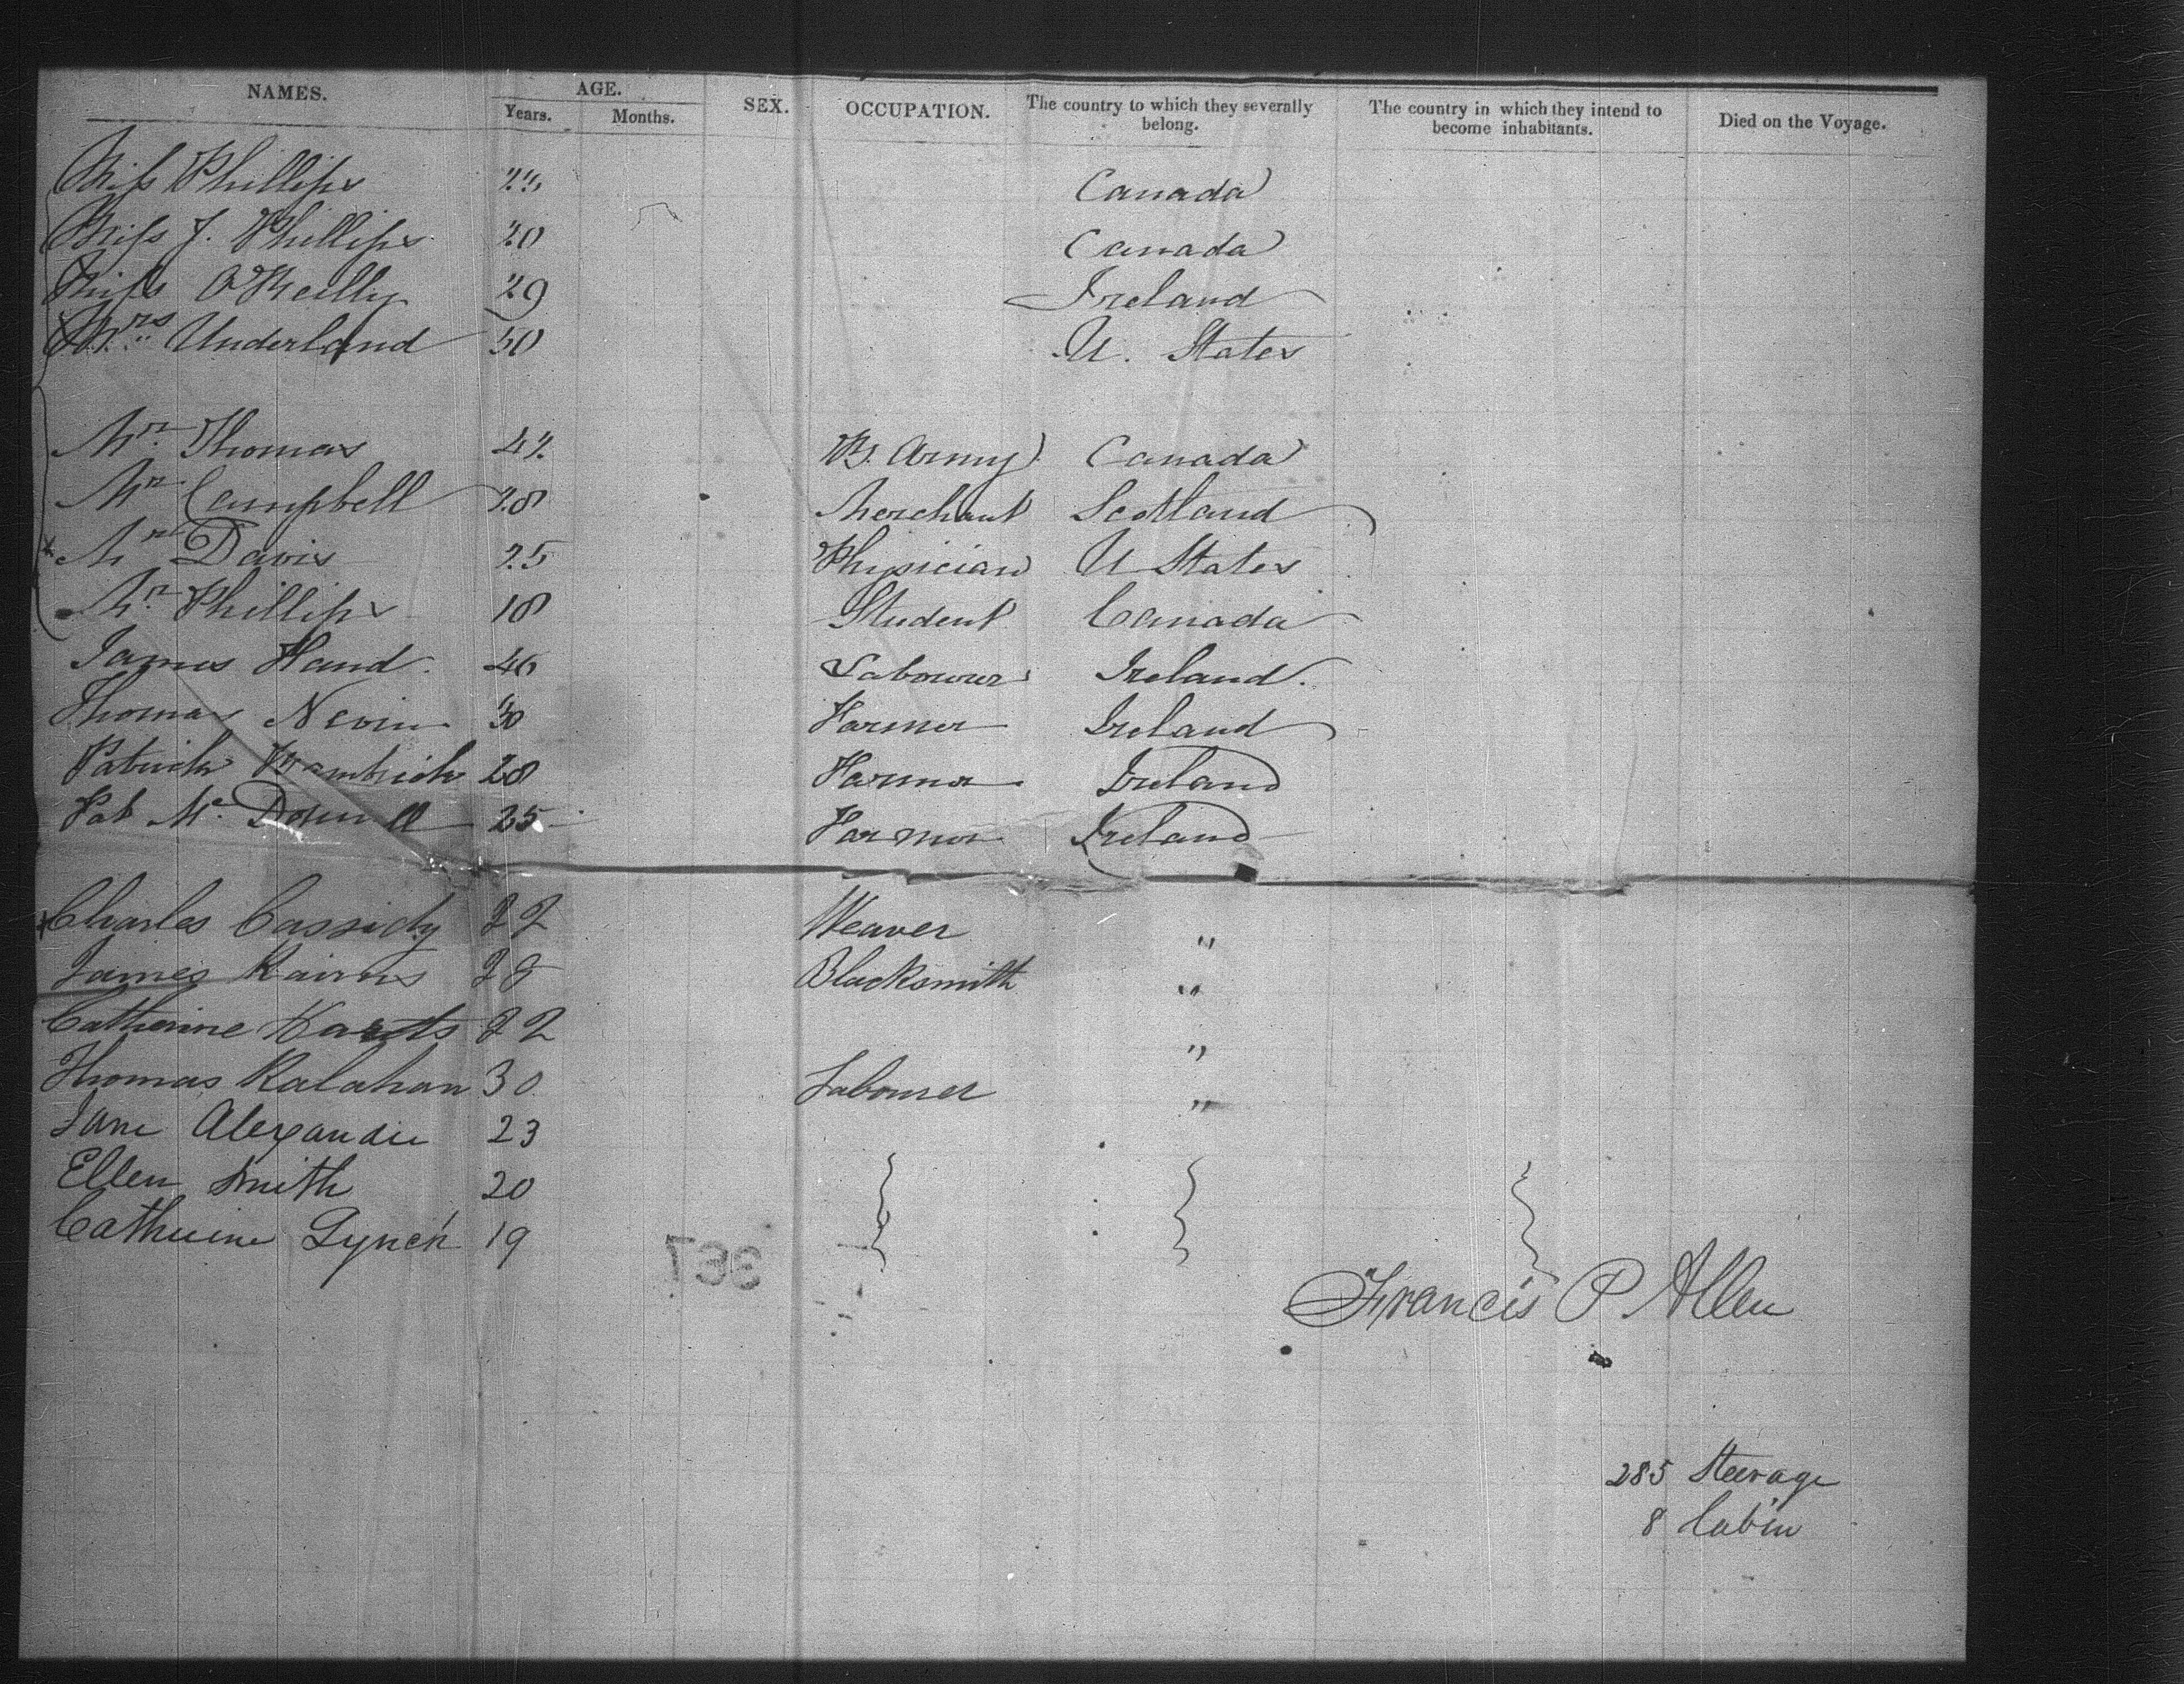 NAMES. AGE. SEX. OCCUPATION. The country to which they severally belong. The country in which they intend to become inhabitants. Died on the Voyage.
Years. Months.
Miss Phillips Canada
Miss J. Phillips 20 Canada
Miss O'Reilly 29 Ireland
Mrs Underland 50 U. States
Mr. Thomas 42 B. Army Canada
Mr Campbell 28 Merchant Scotland
Mr Davis 25 Physician U States
Mr. Phillips 18 Student Canada
James Hand 46 Labourer Ireland.
Thomas Nevin 30 Farmer Ireland
Patrick 28 Farmer Ireland
Pat Mc Donnell 25 Farmer Ireland
Charles Cassidy 22 Weaver "
James Kairns 28 Blacksmith "
Catherine 22 "
Thomas Kalahan 30 Labourer "
Jane Alexander 23
Ellen Smith 20
Catherine Lynch 19
367
Francis P Allen
285 Steerage
8 Cabin